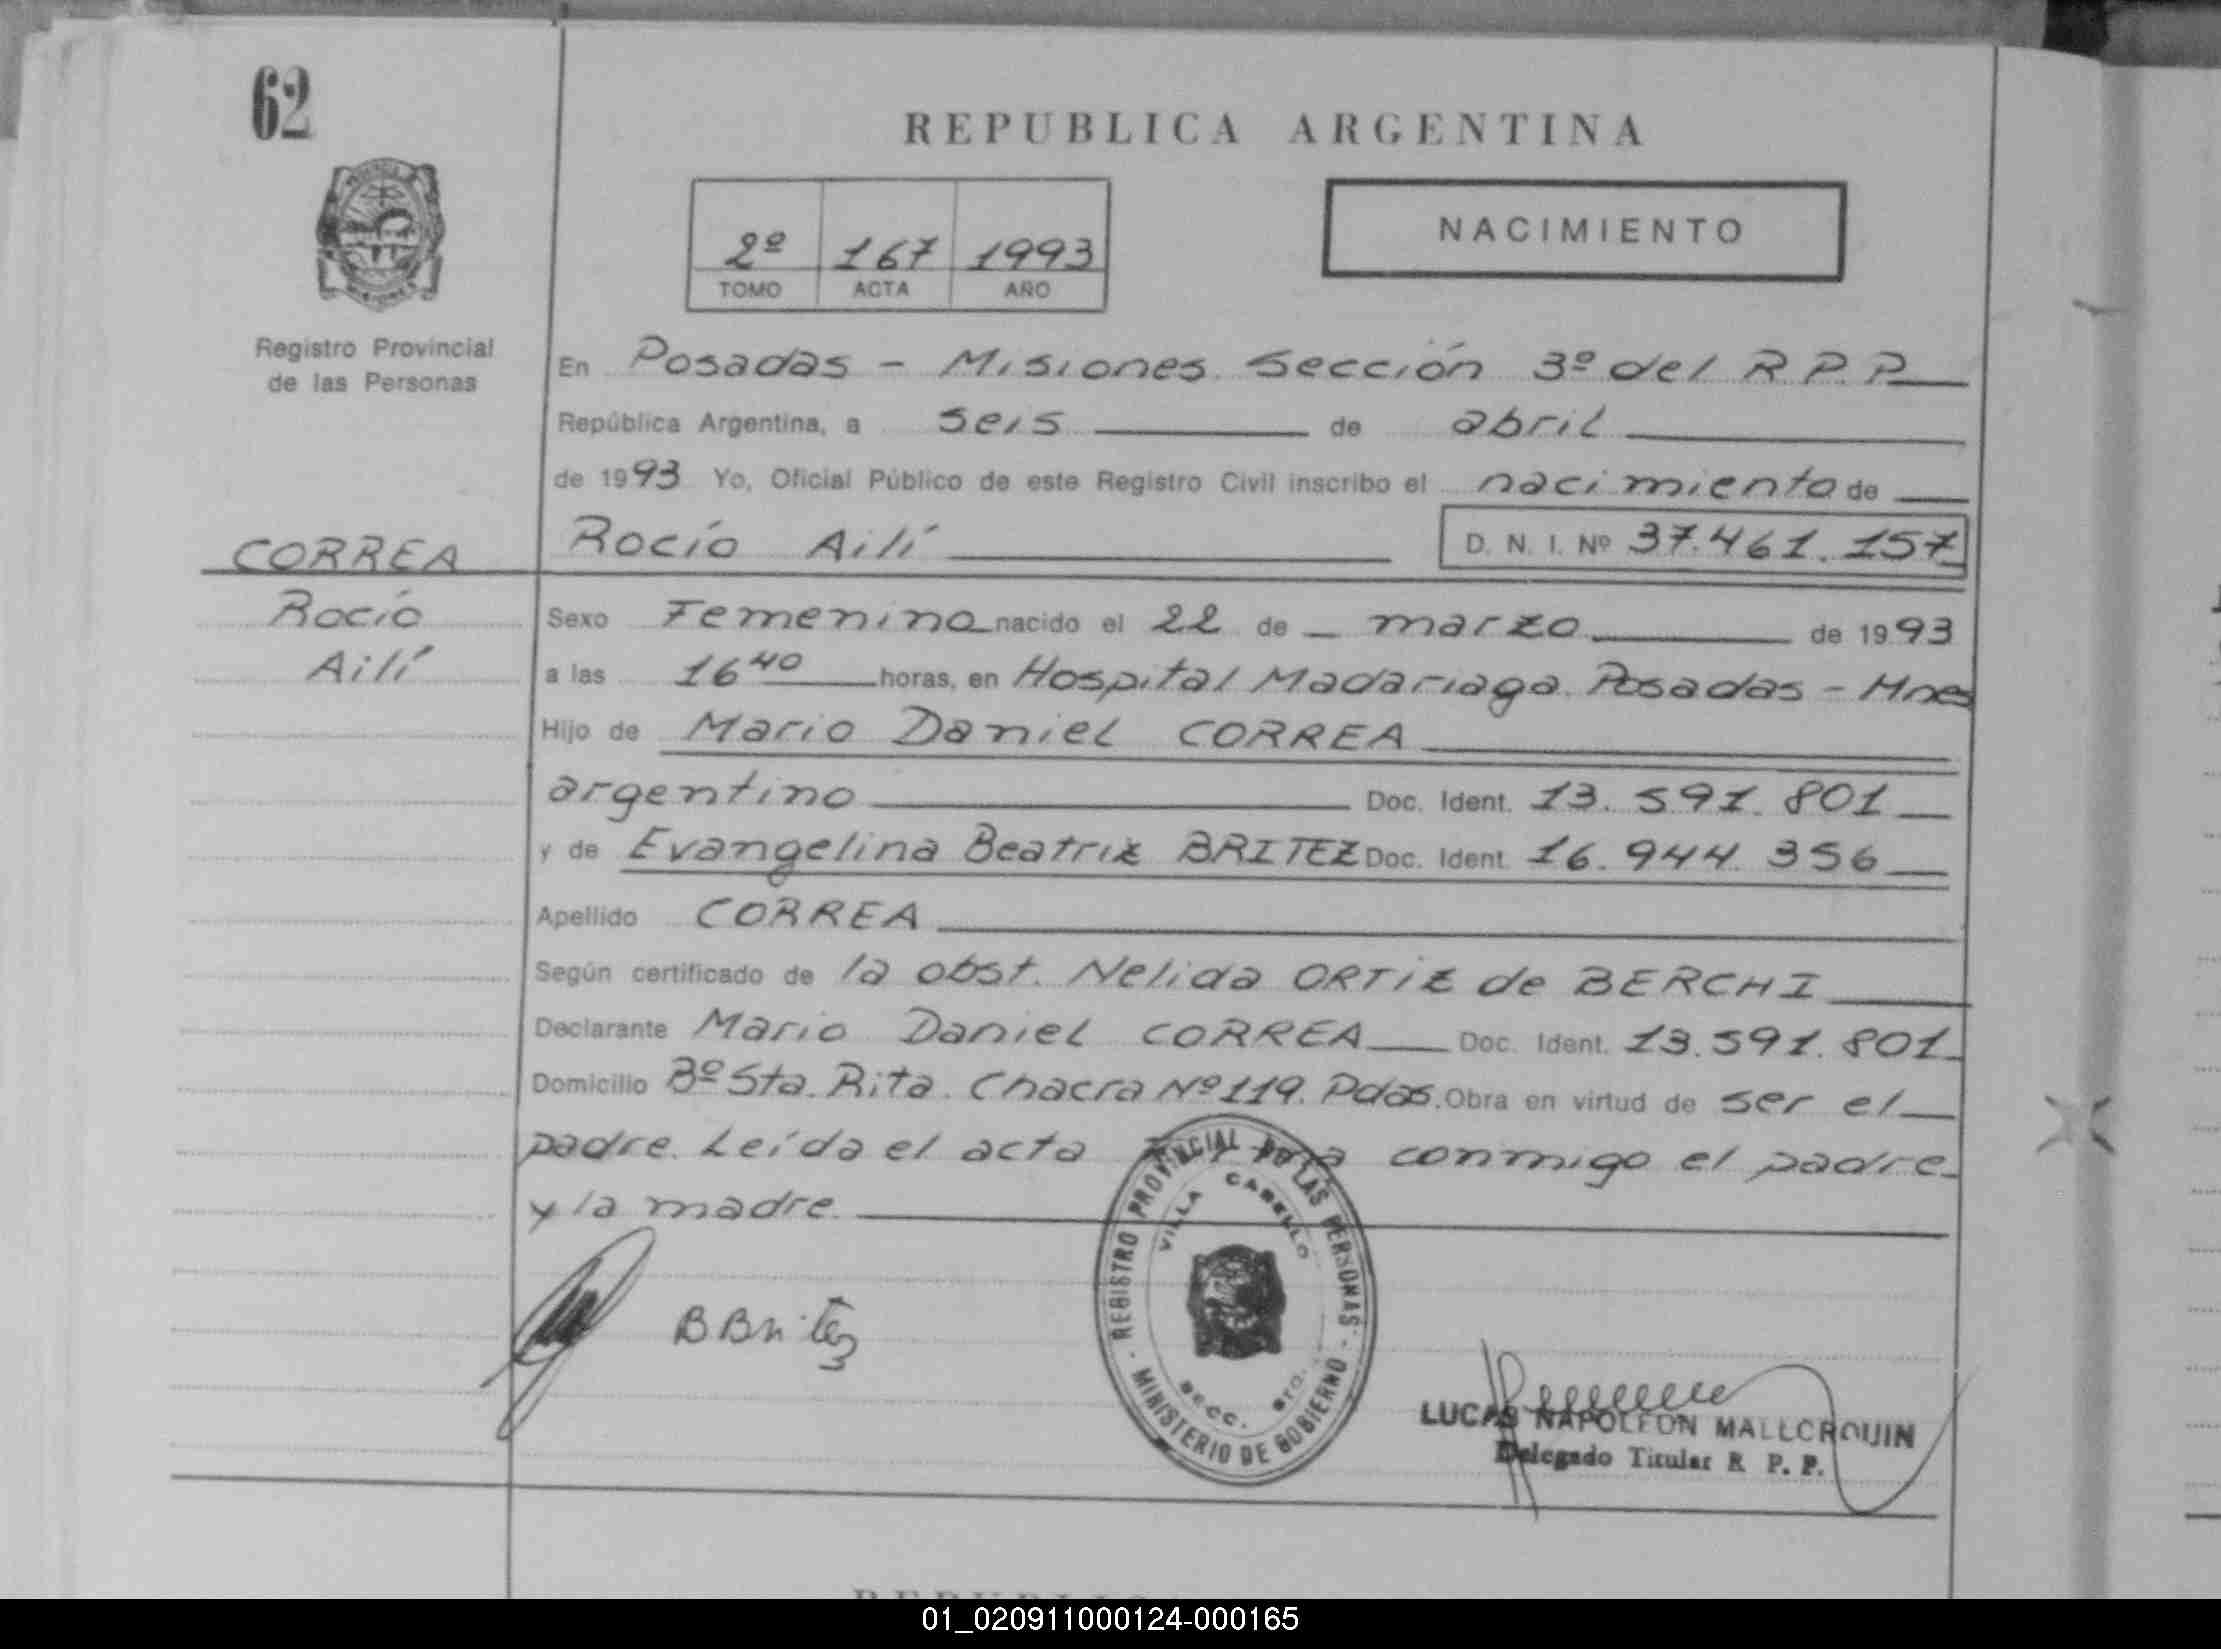 62
REPUBLICA ARGENTINA
2º 167 1993
TOMO ACTA AÑO
NACIMIENTO
Registro Provincial
de las Personas
En Posadas - Misiones. Sección 3º del R.P.P.
República Argentina, a seis de abril
de 1993 Yo, Oficial Público de este Registro Civil inscribo el nacimiento de
CORREA
Rocío
Ailí
Rocío Ailí D. N. I. Nº 37.461.157
Sexo Femenino nacido el 22 de marzo de 1993
a las 16 40 horas, en Hospital Madariaga. Posadas - Mnes
Hijo de Mario Daniel CORREA
argentino Doc. Ident. 13.591.801
y de Evangelina Beatriz BRITEZ Doc. Ident. 16.944.356
Apellido CORREA
Según certificado de la obst. Nelida ORTIZ de BERCHI
Declarante Mario Daniel CORREA Doc. Ident. 13.591.801
Domicilio Bº Sta. Rita. Chacra Nº 119. Pdas. Obra en virtud de ser el
padre. Leída el acta conmigo el padre
y la madre.
REGISTRO PROVINCIAL DE LAS PERSONAS
VILLA CABELLO
SECC.
MINISTERIO DE GOBIERNO
B Britez
LUCAS NAPOLEON MALLORQUIN
Delegado Titular R. P. P.
01_020911000124-000165